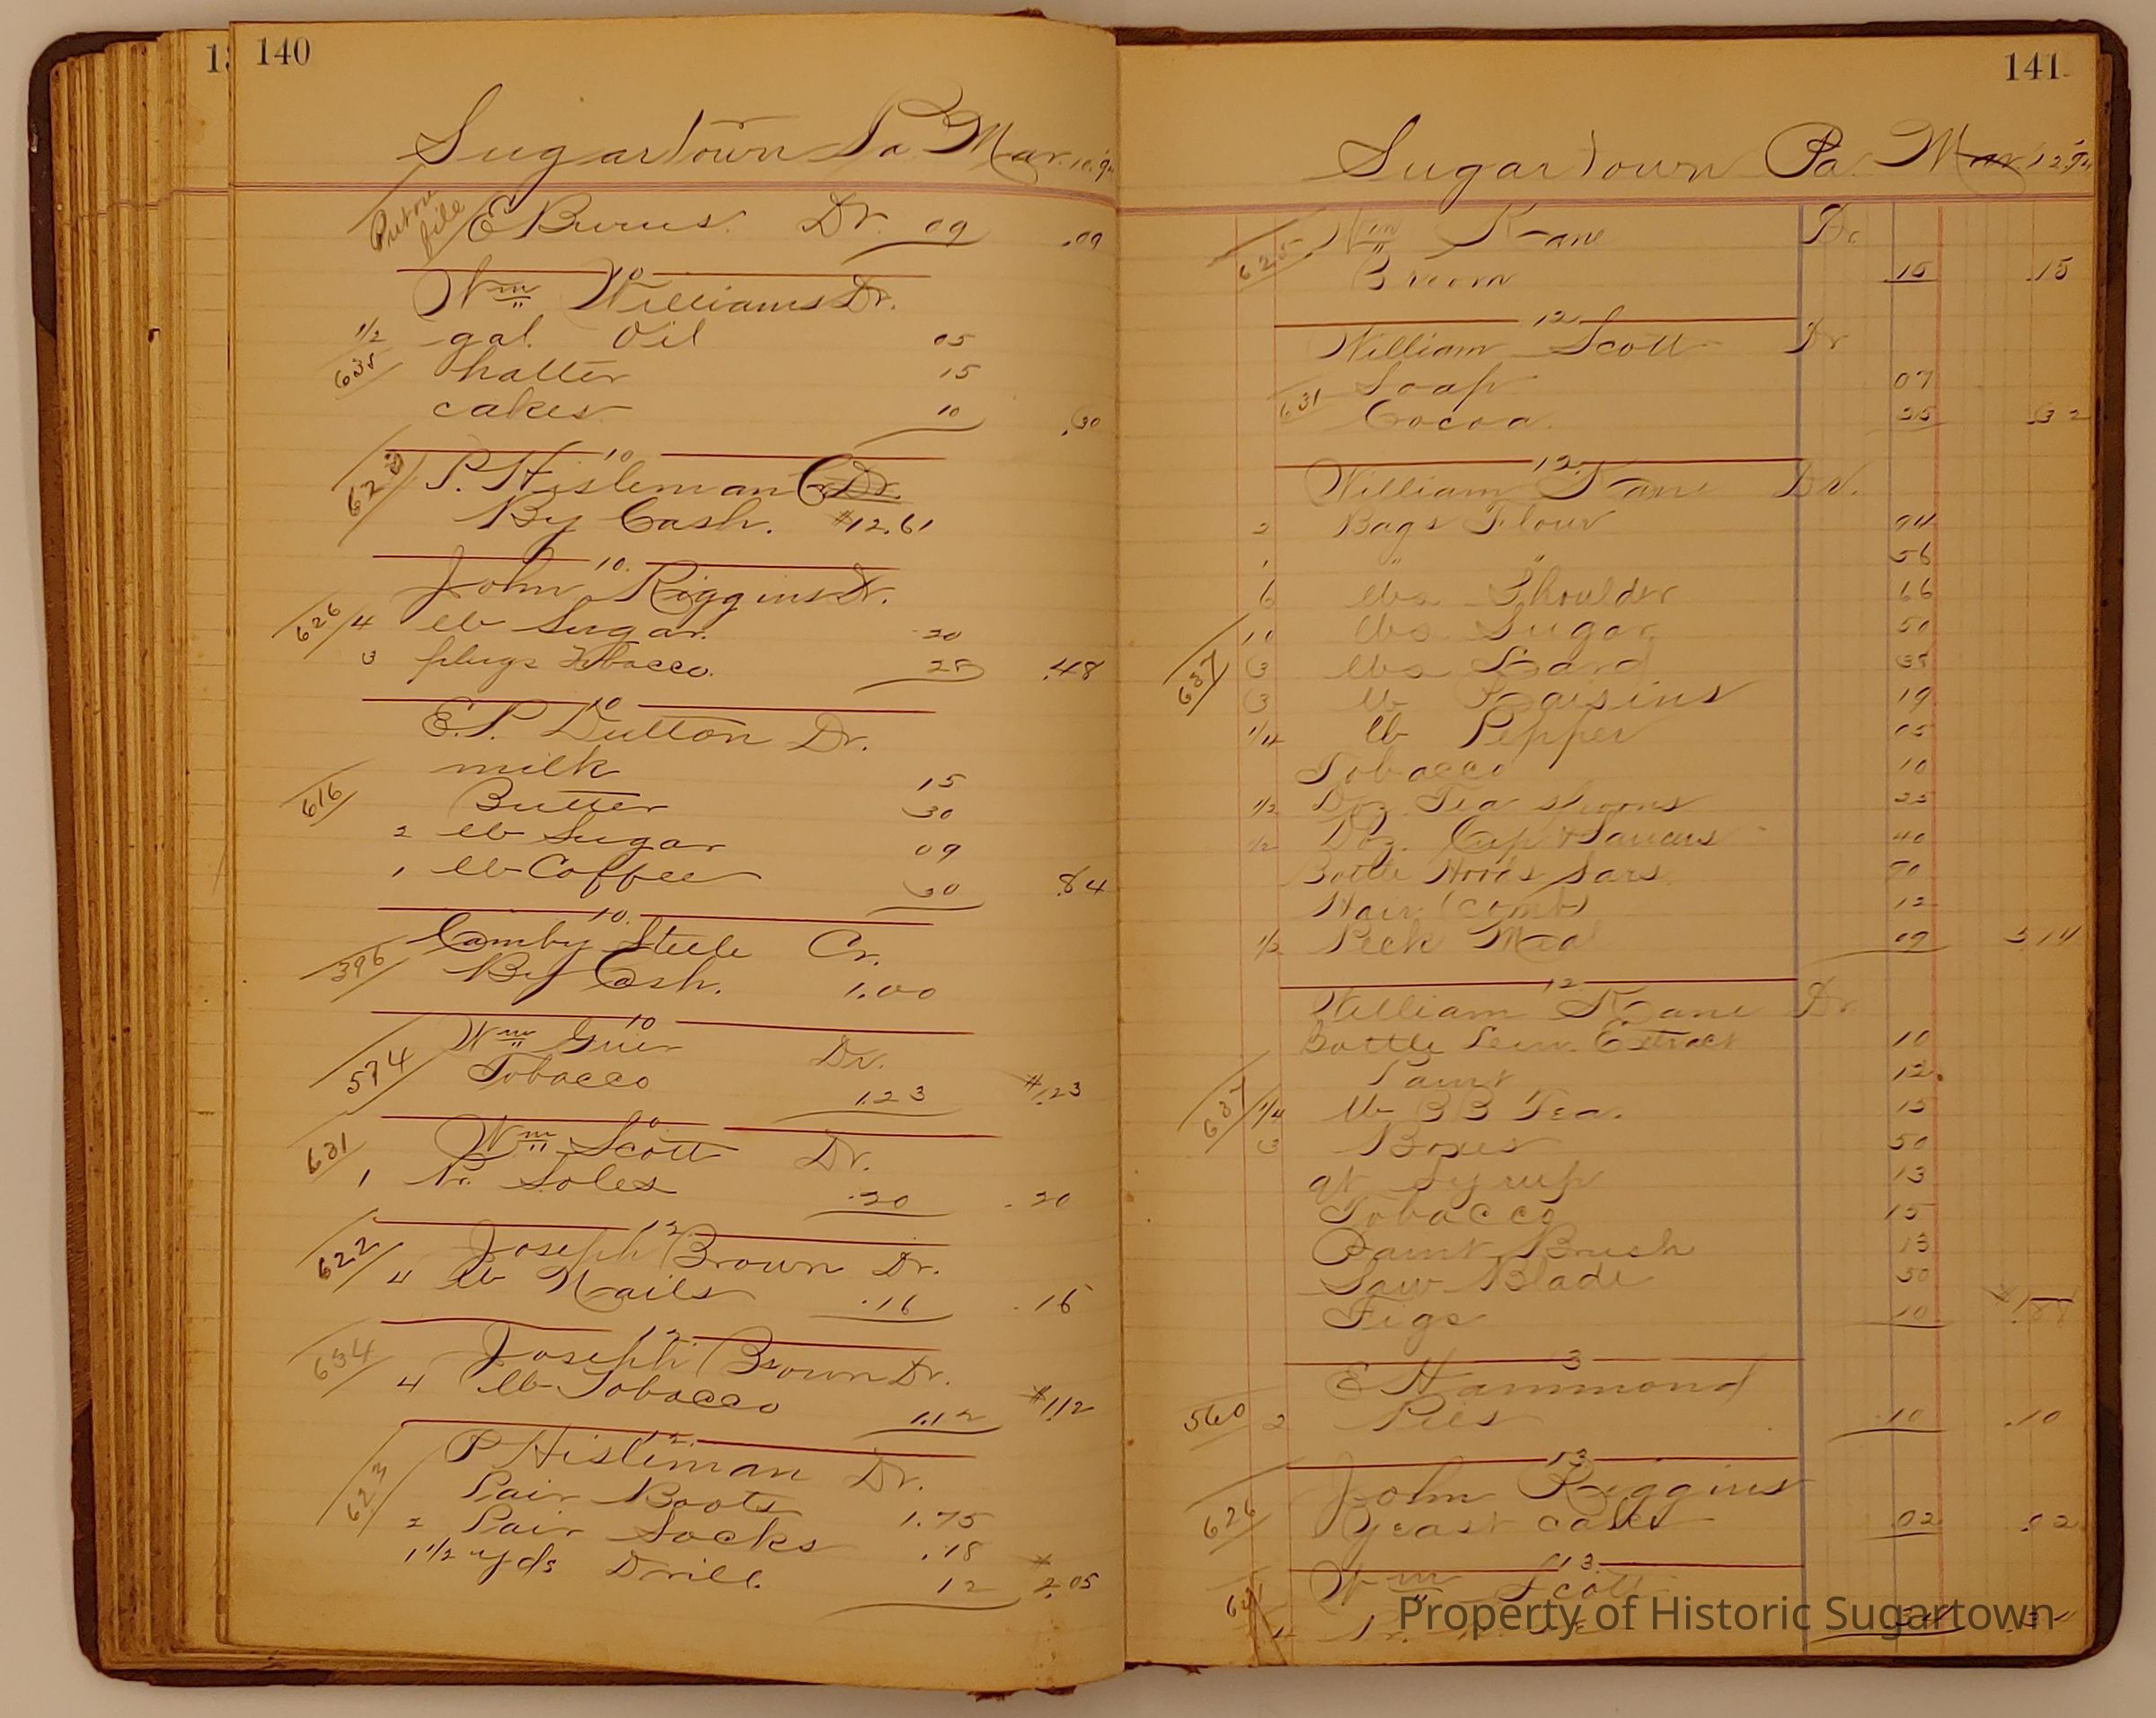 140
Sugartown Pa Mar. 10. 9
Put on file
E Burns. Dr. 09 .09
10
Wm Williams Dr.
1/2 gal. Oil 05
635 halter 15
cakes 10 .30
10
623 P. Histleman Cr Dr.
By Cash. $12.61
10.
John Riggins Dr.
626 4 lb Sugar. 20
3 plugs Tobacco. 28 .48
10
E.P. Dutton Dr.
milk 15
616 Butter 30
2 lb Sugar 09
1 lb Coffee 30 .84
10.
Camby Steele Cr.
396 By Cash. 1.00
10
Wm Grier Dr.
574 Tobacco 1.23 $1.23
Wm Scott Dr.
631 1 Pr. Soles .20 .20
12
Joseph Brown Dr.
622 4 lb Nails .16 .16
12
634 Joseph Brown Dr.
4 lb Tobacco 1.12 $1.12
12.
P Histleman Dr.
623 Pair Boots 1.75
2 Pair Socks .18
1 1/2 yds Drill. 12 $2.05
141
Sugartown Pa. Mar. 12.
625 Wm Kane Dr
Broom 15 .15
12
William Scott Dr
Soap 07
631 Cocoa. 25 .32
12
William Kane Dr.
2 Bags Flour 94
1 " " 56
6 lbs Shoulder 66
10 lbs Sugar 50
637 3 lbs Lard 38
3 lb Raisins 19
1/4 lb Pepper 05
Tobacco 10
1/2 Doz Tea spoons 25
1/2 Doz. Cup & Saucers 40
Bottle Hoods Sars. 90
Hair Comb 12
1/2 Peck Meal 09 514
12
William Kane Dr
Bottle Lem. Extract 10
Paint 12
637 1/4 lb BB Tea. 15
3 Boxes 50
qt Syrup 13
Tobacco 15
Paint Brush 13
Saw Blade 50
Figs 10
3
E Hammond
560 2 Pies .10 .10
13
John Riggins
626 Yeast cake 02 .02
13.
Wm Scott
Property of Historic Sugartown